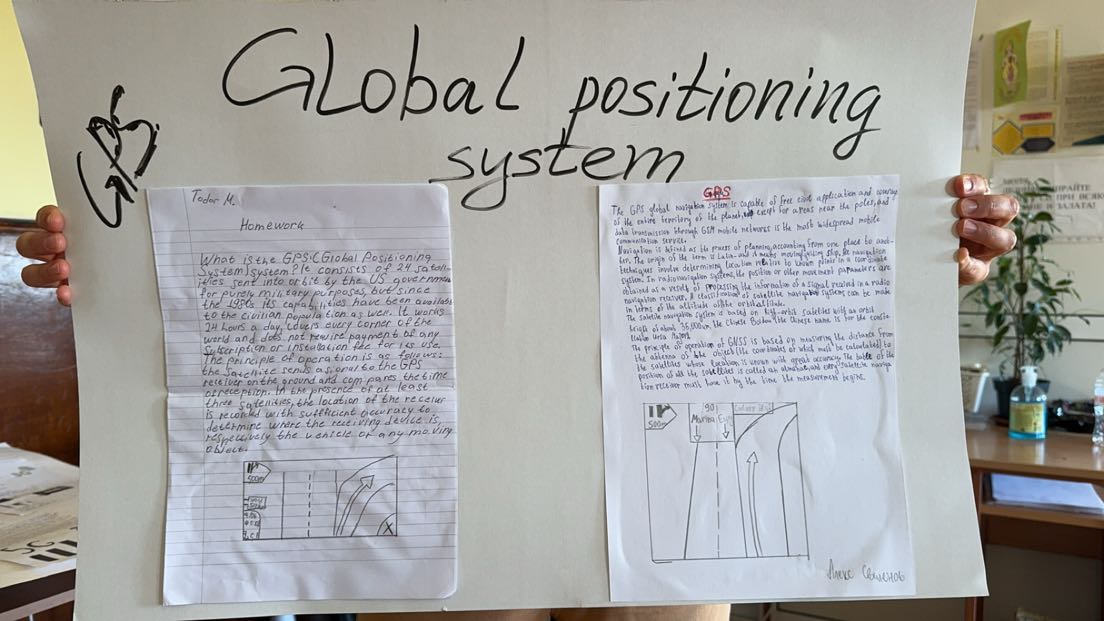 GPS
Global positioning
system
Todor M.
Homework
What is the GPS? (Global Positioning
System) system? It consists of 24 satell-
ities sent into orbit by the US government
for purely military purposes, but since
the 1980s its capalities have been available
to the civilian population as well. It works
24 hours a day, covers every corner of the
world and does not require payment of any
Subscription or installation fee for its use.
The principle of operation is as follows:
the satellite sends a signal to the GPS
receiver on the ground and compares the time
of reception. In the presence of at least
three satenities, the location of the receiver
is recorded with sufficient accuracy to
determine where the receiving device is,
respectively the vehicle or any moving
object.
500m
X
GPS
The GPS global navigation system is capable of free civil application and coverage
of the entire territory of the planet, except for areas near the poles, and
data transmission through GSM mobile networks is the most widespread mobile
communication service.
Navigation is defined as the process of planning, accounting from one place to anot-
her. The origin of the term is Latin- and it means moving, driving ship. the navigation
techniques involve determining location relative to known points in a coordinate
system. In radionavigation systems, the position or other movement parameters are
obtained as a result of processing the information of a signal received in a radio
navigation receiver. A classification of satellite navigation systems can be made
in terms of the altitude of the orbital
The satellite navigation system is based on high-orbit satellites with an orbit
heigh of about 36,000km, the Chinese Beidou, the Chinese name is for the conste-
llation Ursa Major.
The principle of operation of GNSS is based on measuring the distance from
the antenna of the object (the coordinates of which must be calculated) to
the satellites whose location is known with great accuracy. The table of the
position of all the satellites is called an almanac, and every satellite naviga-
tion receiver must have it by the time the measurement begins.
500m
90
Marina
Алекс